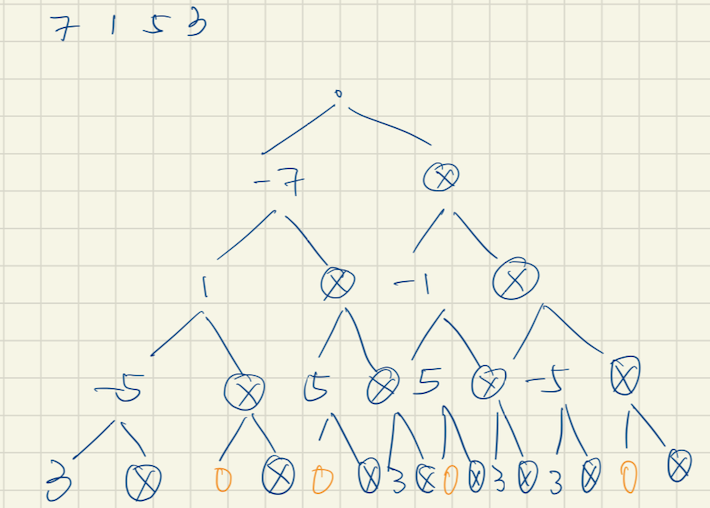 7 1 5 3
-7 ⊗
1 ⊗ -1 ⊗
-5 ⊗ 5 ⊗ 5 ⊗ -5 ⊗
3 ⊗ 0 ⊗ 0 ⊗ 3 ⊗ 0 ⊗ 3 ⊗ 3 ⊗ 0 ⊗